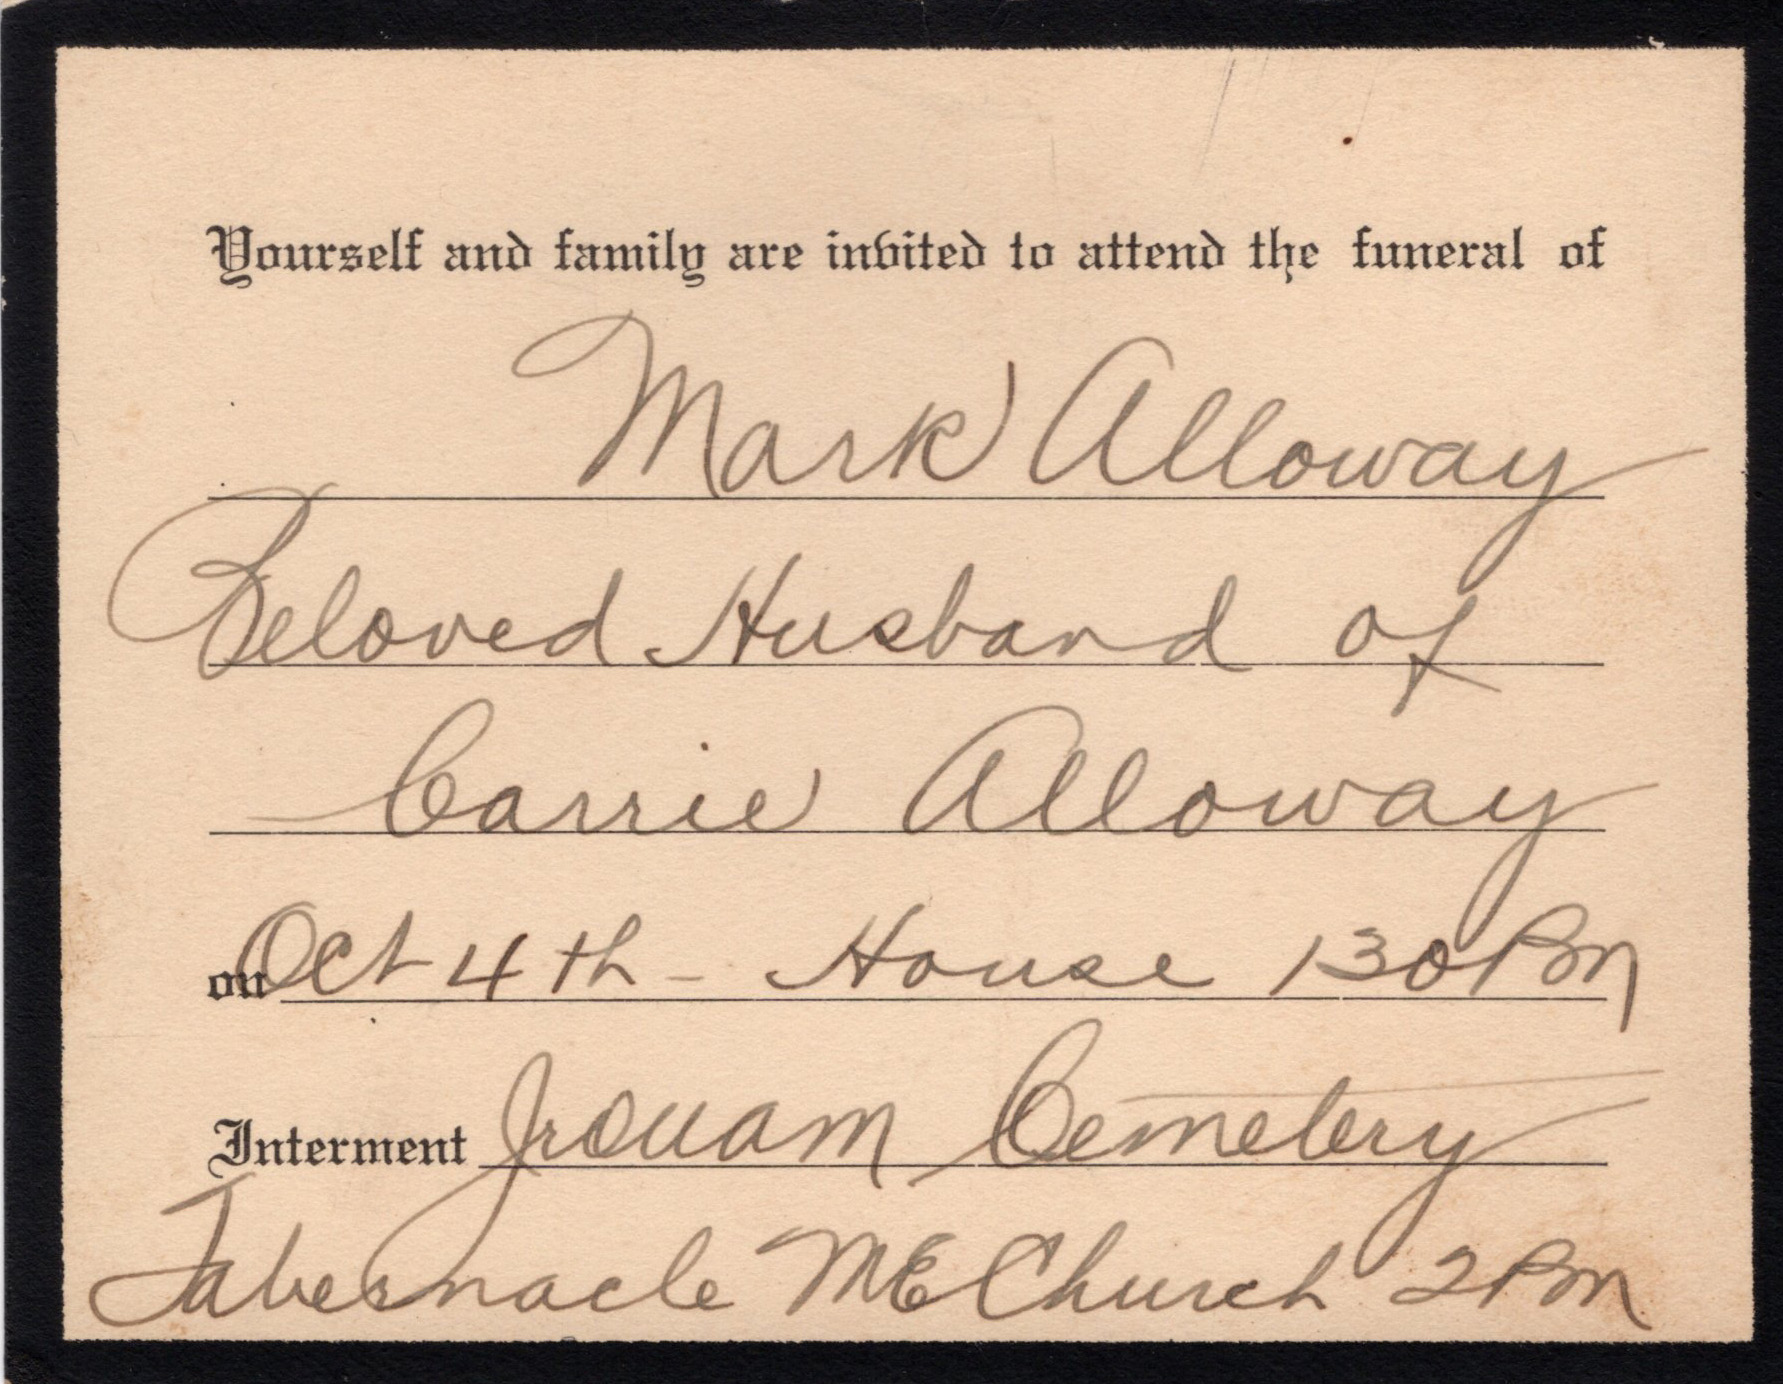 Yourself and family are invited to attend the funeral of
Mark Alloway
Beloved Husband of
Carrie Alloway
on Oct 4th - House 130 Pm
Interment Cemetery
Tabernacle ME Church 2 Pm